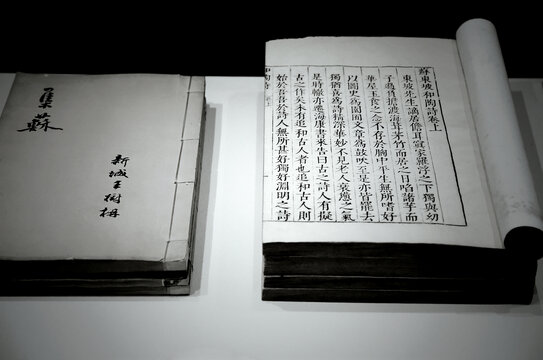 蘇東坡和陶詩卷上
東坡先生謫居儋耳寘家羅浮之下獨與幼
子過負擔渡海葺茅竹而居之日啗藷芋而
華屋玉食之念不存於胸中平生無所嗜好
以圖史爲園囿文章爲鼓吹至是亦皆罷去
獨猶喜爲詩精深華妙不見老人衰憊之氣
是時轍亦遷海康書來告曰古之詩人有擬
古之作矣未有追和古人者也追和古人則
始於吾吾於詩人無所甚好獨好淵明之詩
和陶詩 卷上
集蘇
新城王樹枏